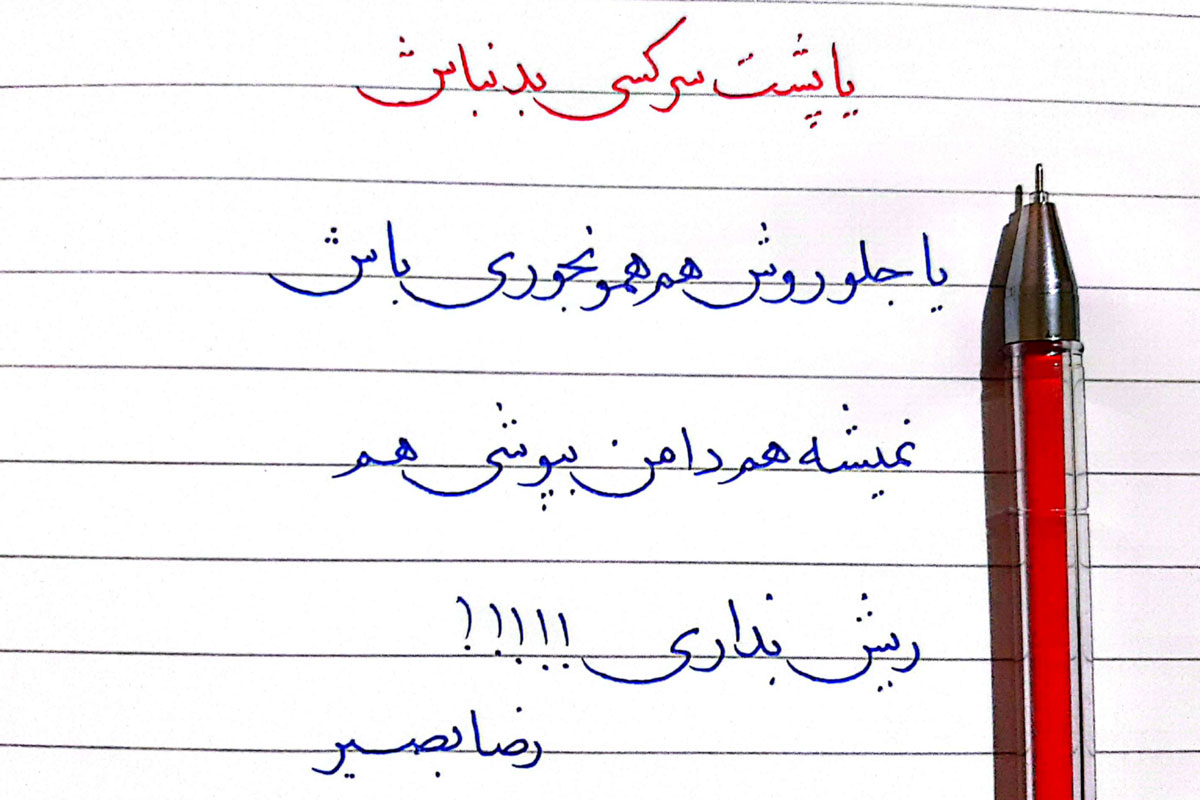 یا پشت سر کسی بد نباش
یا جلو روش هم همونجوری باش
نمیشه هم دامن بپوشی هم
ریش بذاری !!!!!!
رضا بصیر